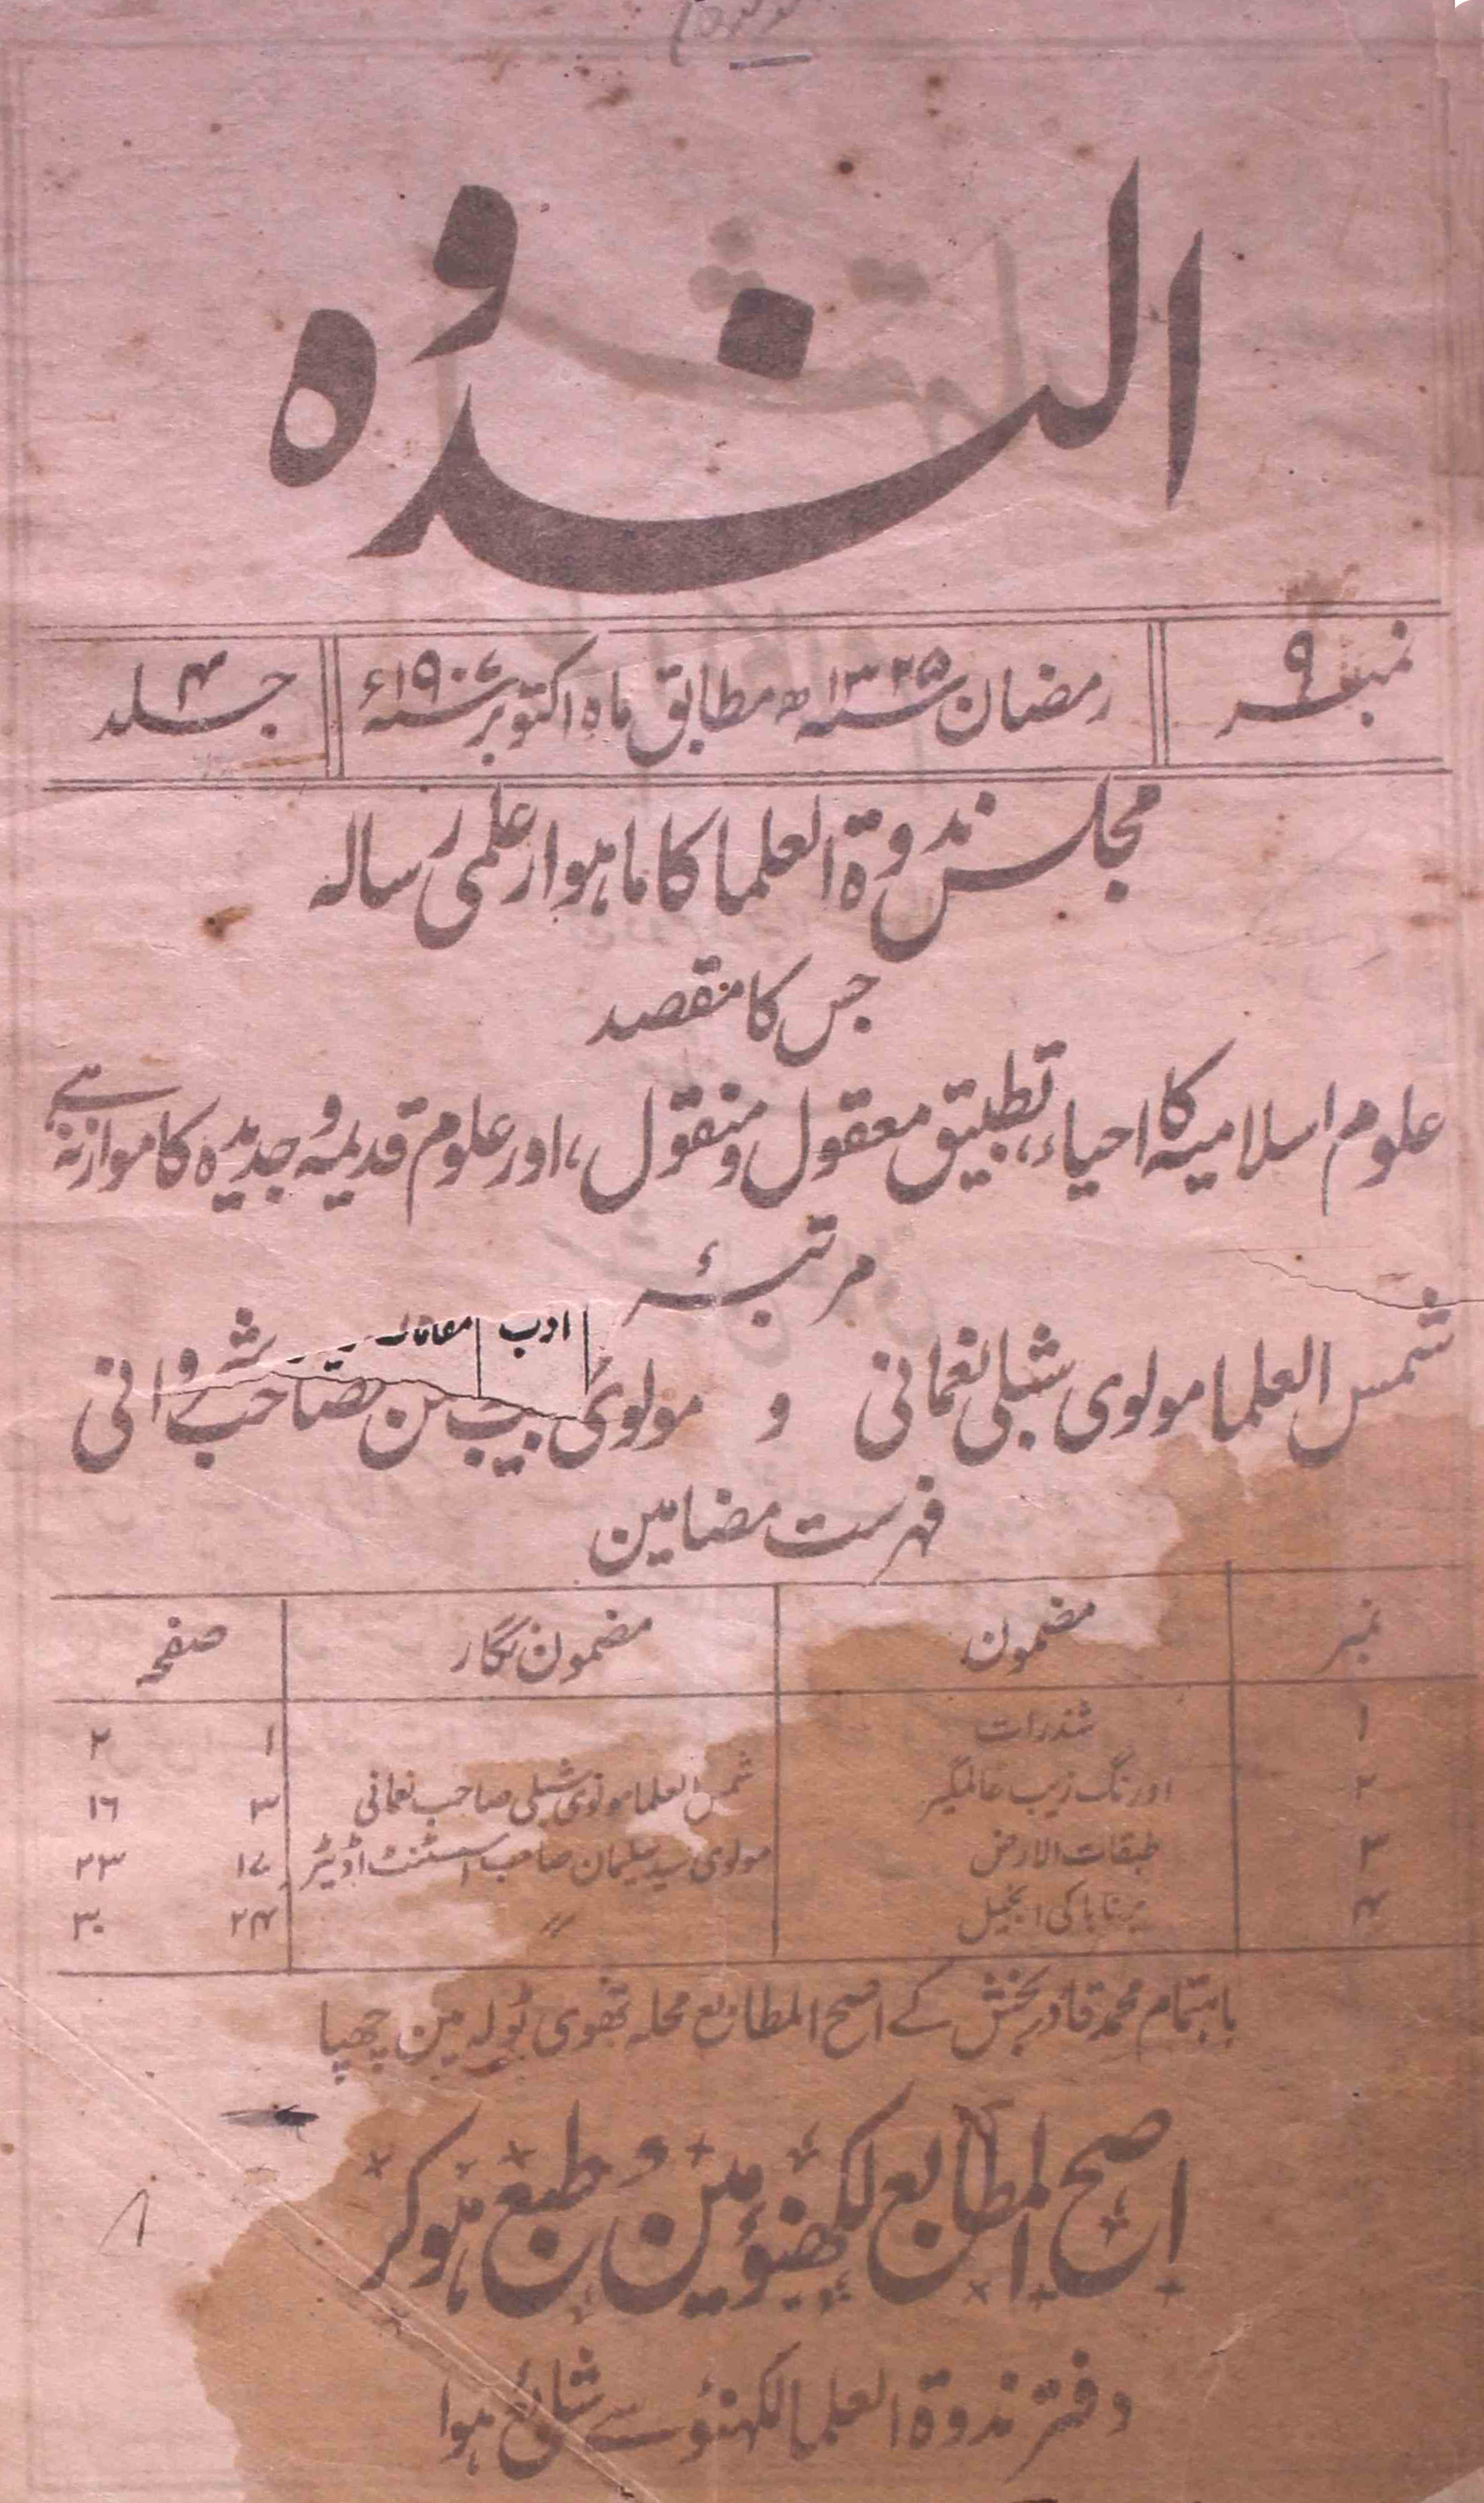 الندوہ
نمبر ۹ رمضان ۱۳۲۵ھ مطابق ماہ اکتوبر ۱۹۰۷ء جلد ۴
مجلس ندوۃ العلما کا ماہوار علمی رسالہ
جس کا مقصد
علوم اسلامیہ کا احیاء، تطبیق معقول و منقول، اور علوم قدیمہ و جدیدہ کا موازنہ ہے
مرتبۂ
شمس العلما مولوی شبلی نعمانی و مولوی صاحب شروانی
ادب
فہرست مضامین
نمبر مضمون مضمون نگار صفحہ
۱ شذرات ۱ ۲
۲ اورنگ زیب عالمگیر شمس العلما مولوی شبلی صاحب نعمانی ۳ ۱۶
۳ طبقات الارض مولوی سید سلیمان صاحب اسسٹنٹ اڈیٹر ۱۷ ۲۳
۴ برناباکی انجیل 〃 ۲۴ ۳۰
باہتمام محمد قادر بخش کے اصح المطابع محلہ تھوی ٹولہ مین چھپا
اصح المطابع لکھنؤ مین طبع ہوکر
دفتر ندوۃ العلما لکھنؤ سے شائع ہوا